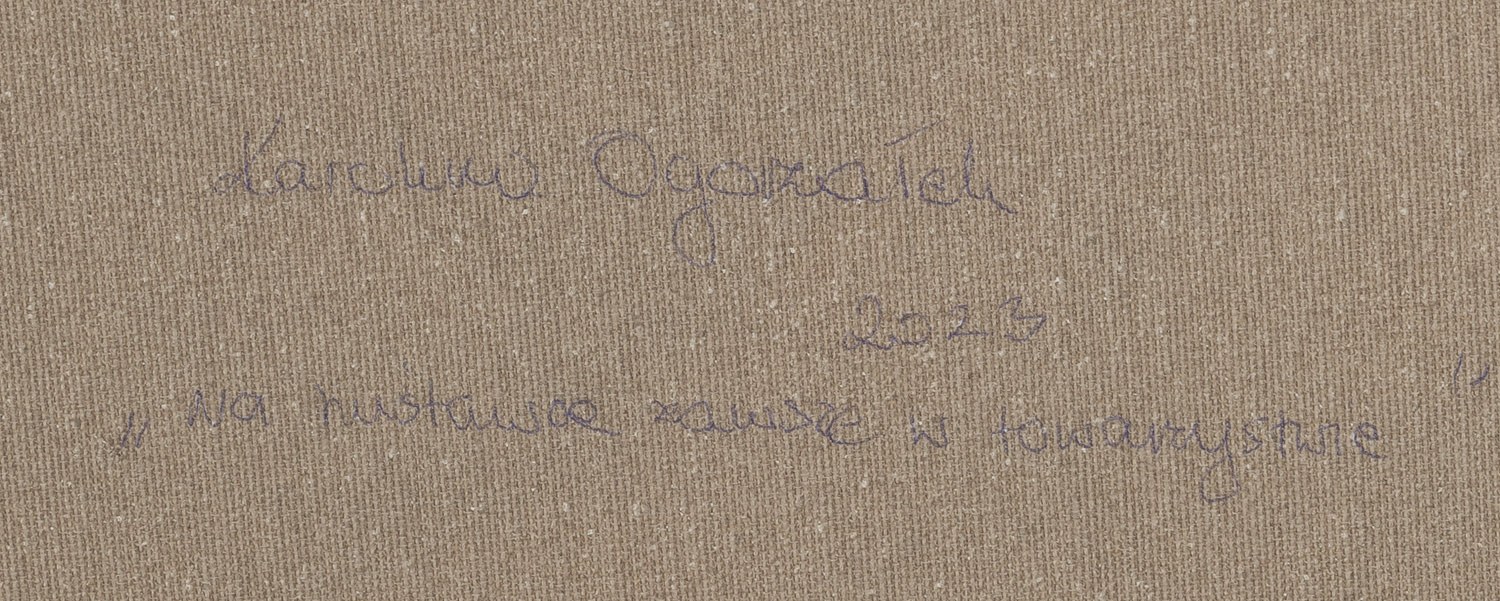 Karolina Ogorzałek
2023
„Na huśtawce zawsze w towarzystwie"